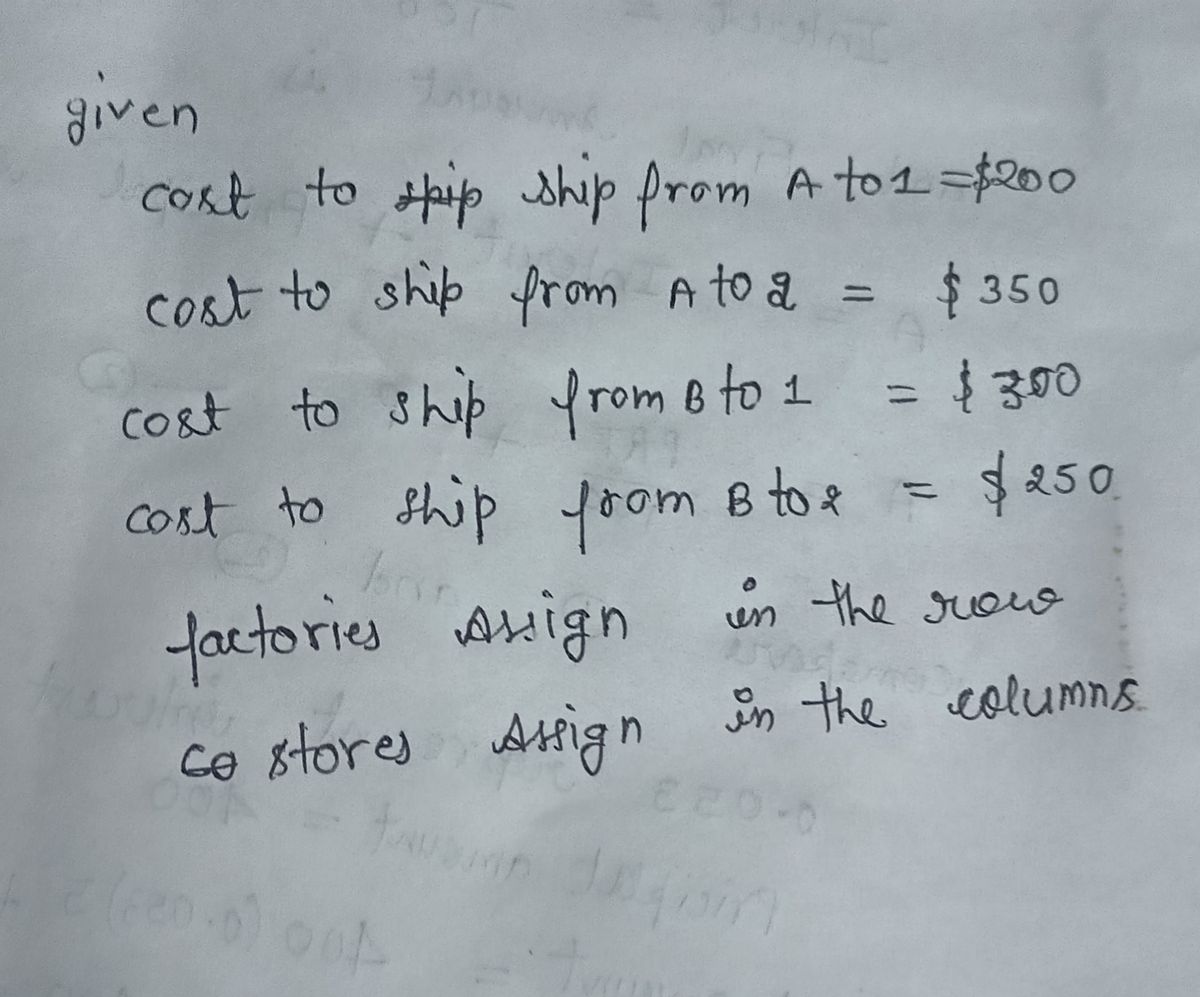 given
cost to ship ship from A to 1 = $200
cost to ship from A to 2 = $ 350
cost to ship from B to 1 = $ 300
cost to ship from B to 2 = $ 250
factories Assign in the row
co stores Assign in the columns